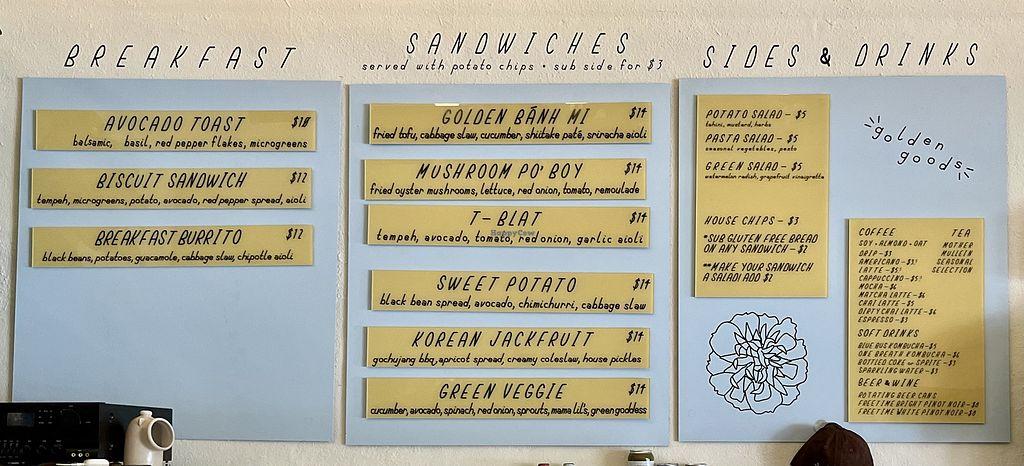 BREAKFAST
AVOCADO TOAST $10
balsamic, basil, red pepper flakes, microgreens
BISCUIT SANDWICH $12
tempeh, microgreens, potato, avocado, red pepper spread, aioli
BREAKFAST BURRITO $12
black beans, potatoes, guacamole, cabbage slaw, chipotle aioli
SANDWICHES
served with potato chips • sub side for $3
GOLDEN BÁNH MI $14
fried tofu, cabbage slaw, cucumber, shiitake paté, sriracha aioli
MUSHROOM PO' BOY $14
fried oyster mushrooms, lettuce, red onion, tomato, remoulade
T-BLAT $14
tempeh, avocado, tomato, red onion, garlic aioli
HappyCow
SWEET POTATO $14
black bean spread, avocado, chimichurri, cabbage slaw
KOREAN JACKFRUIT $14
gochujang bbq, apricot spread, creamy coleslaw, house pickles
GREEN VEGGIE $14
cucumber, avocado, spinach, red onion, sprouts, mama lil's, green goddess
SIDES & DRINKS
POTATO SALAD - $5
tahini, mustard, herbs
PASTA SALAD - $5
seasonal vegetables, pesto
GREEN SALAD - $5
watermelon radish, grapefruit vinaigrette
HOUSE CHIPS - $3
*SUB GLUTEN FREE BREAD
ON ANY SANDWICH - $2
**MAKE YOUR SANDWICH
A SALAD! ADD $2
golden
goods
COFFEE
SOY • ALMOND • OAT
DRIP - $3
AMERICANO - $3
LATTE - $5
CAPPUCCINO - $5
MOCHA - $6
MATCHA LATTE - $6
CHAI LATTE - $5
DIRTY CHAI LATTE - $6
ESPRESSO - $3
TEA
MOTHER
MULLEIN
SEASONAL
SELECTION
SOFT DRINKS
BLUE BUS KOMBUCHA - $5
ONE BREATH KOMBUCHA - $6
BOTTLED COKE or SPRITE - $3
SPARKLING WATER - $3
BEER & WINE
ROTATING BEER CANS
FREETIME BRIGHT PINOT NOIR - $8
FREETIME WHITE PINOT NOIR - $8